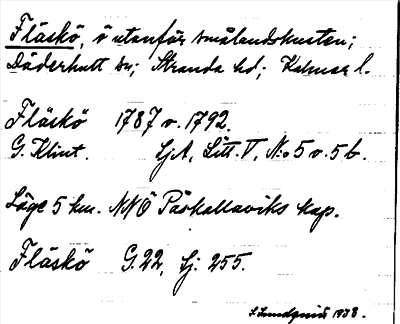 Fläskö, ö utanför smålandskusten;
Döderhult sn; Stranda hd; Kalmar l.
Fläskö 1787 o. 1792.
G. Klint. SjA, Litt. V, N:o 5 o. 5 b.
Läge 5 km. NNÖ Påskallaviks kap.
Fläskö G. 22, Sj: 255.
S. Lundquist 1938.